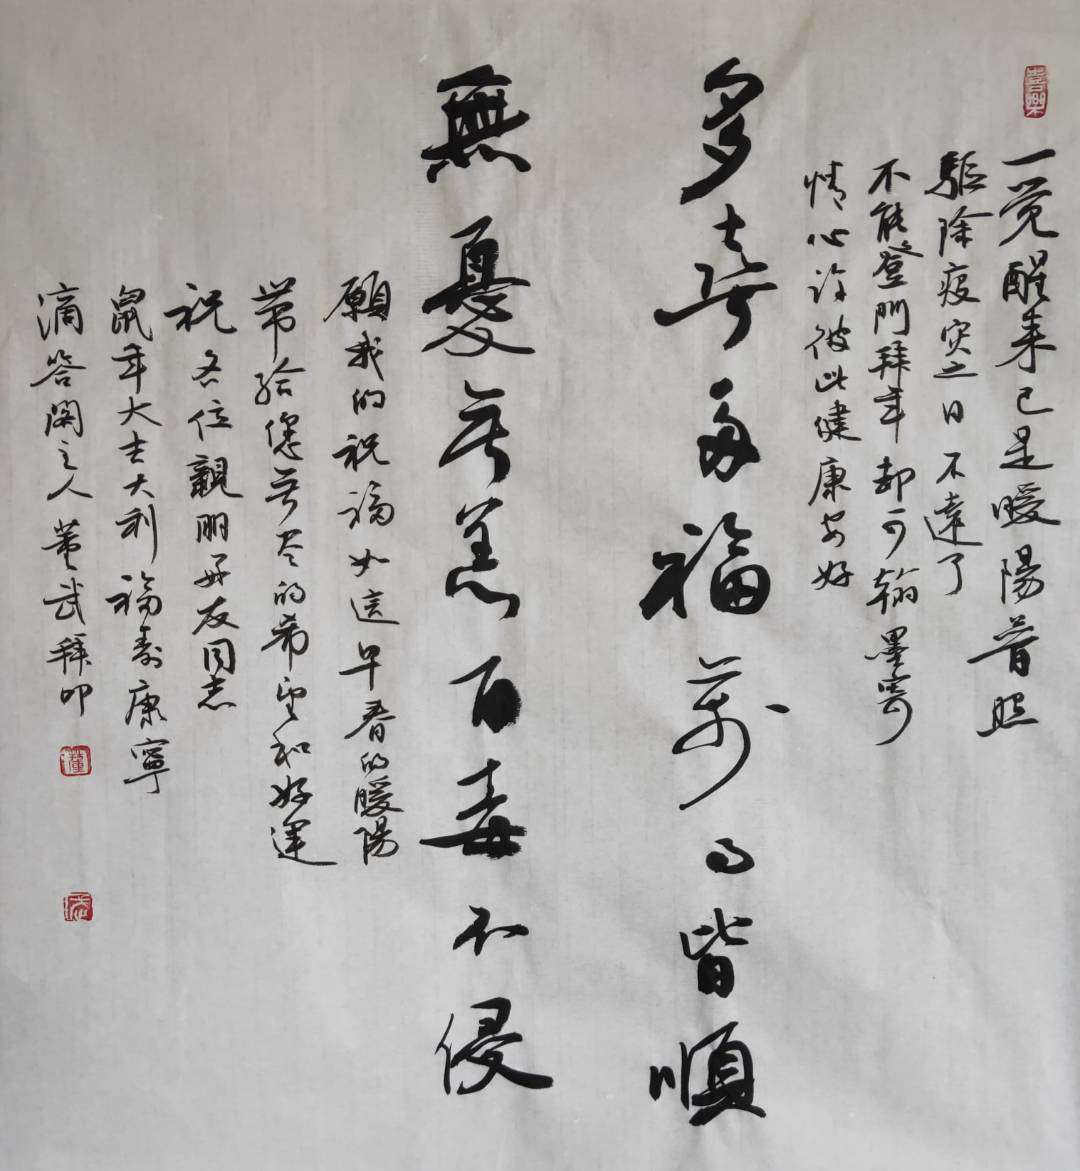 喜樂
一觉醒来已是暖陽普照
驅除疫灾之日不遠了
不能登門拜年却可翰墨寄
情心許彼此健康安好
多喜多福萬事皆順
無憂无恙百毒不侵
願我的祝福如這早春的暖陽
带给您无尽的希望和好運
祝各位親朋好友同志
鼠年大吉大利福壽康寧
滴答閣主人董武拜叩
董
武